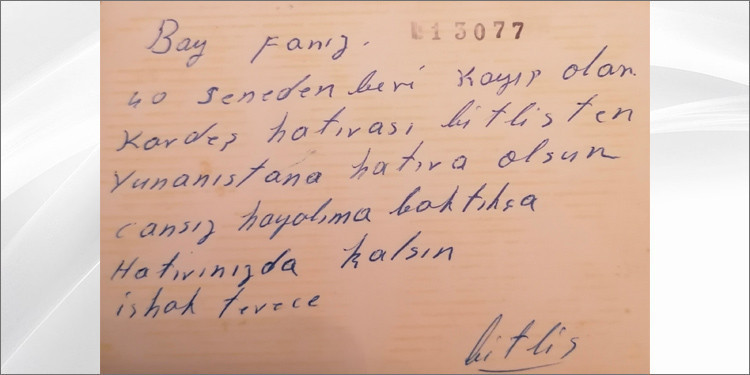 Bay Fanız.
013077
40 Seneden beri Kayıp olan
Kardeş hatırası bitlis ten
Yunanıstana hatıra olsun
cansız hayalıma baktıkça
Hatırınızda kalsın
ishak terece
bitlis